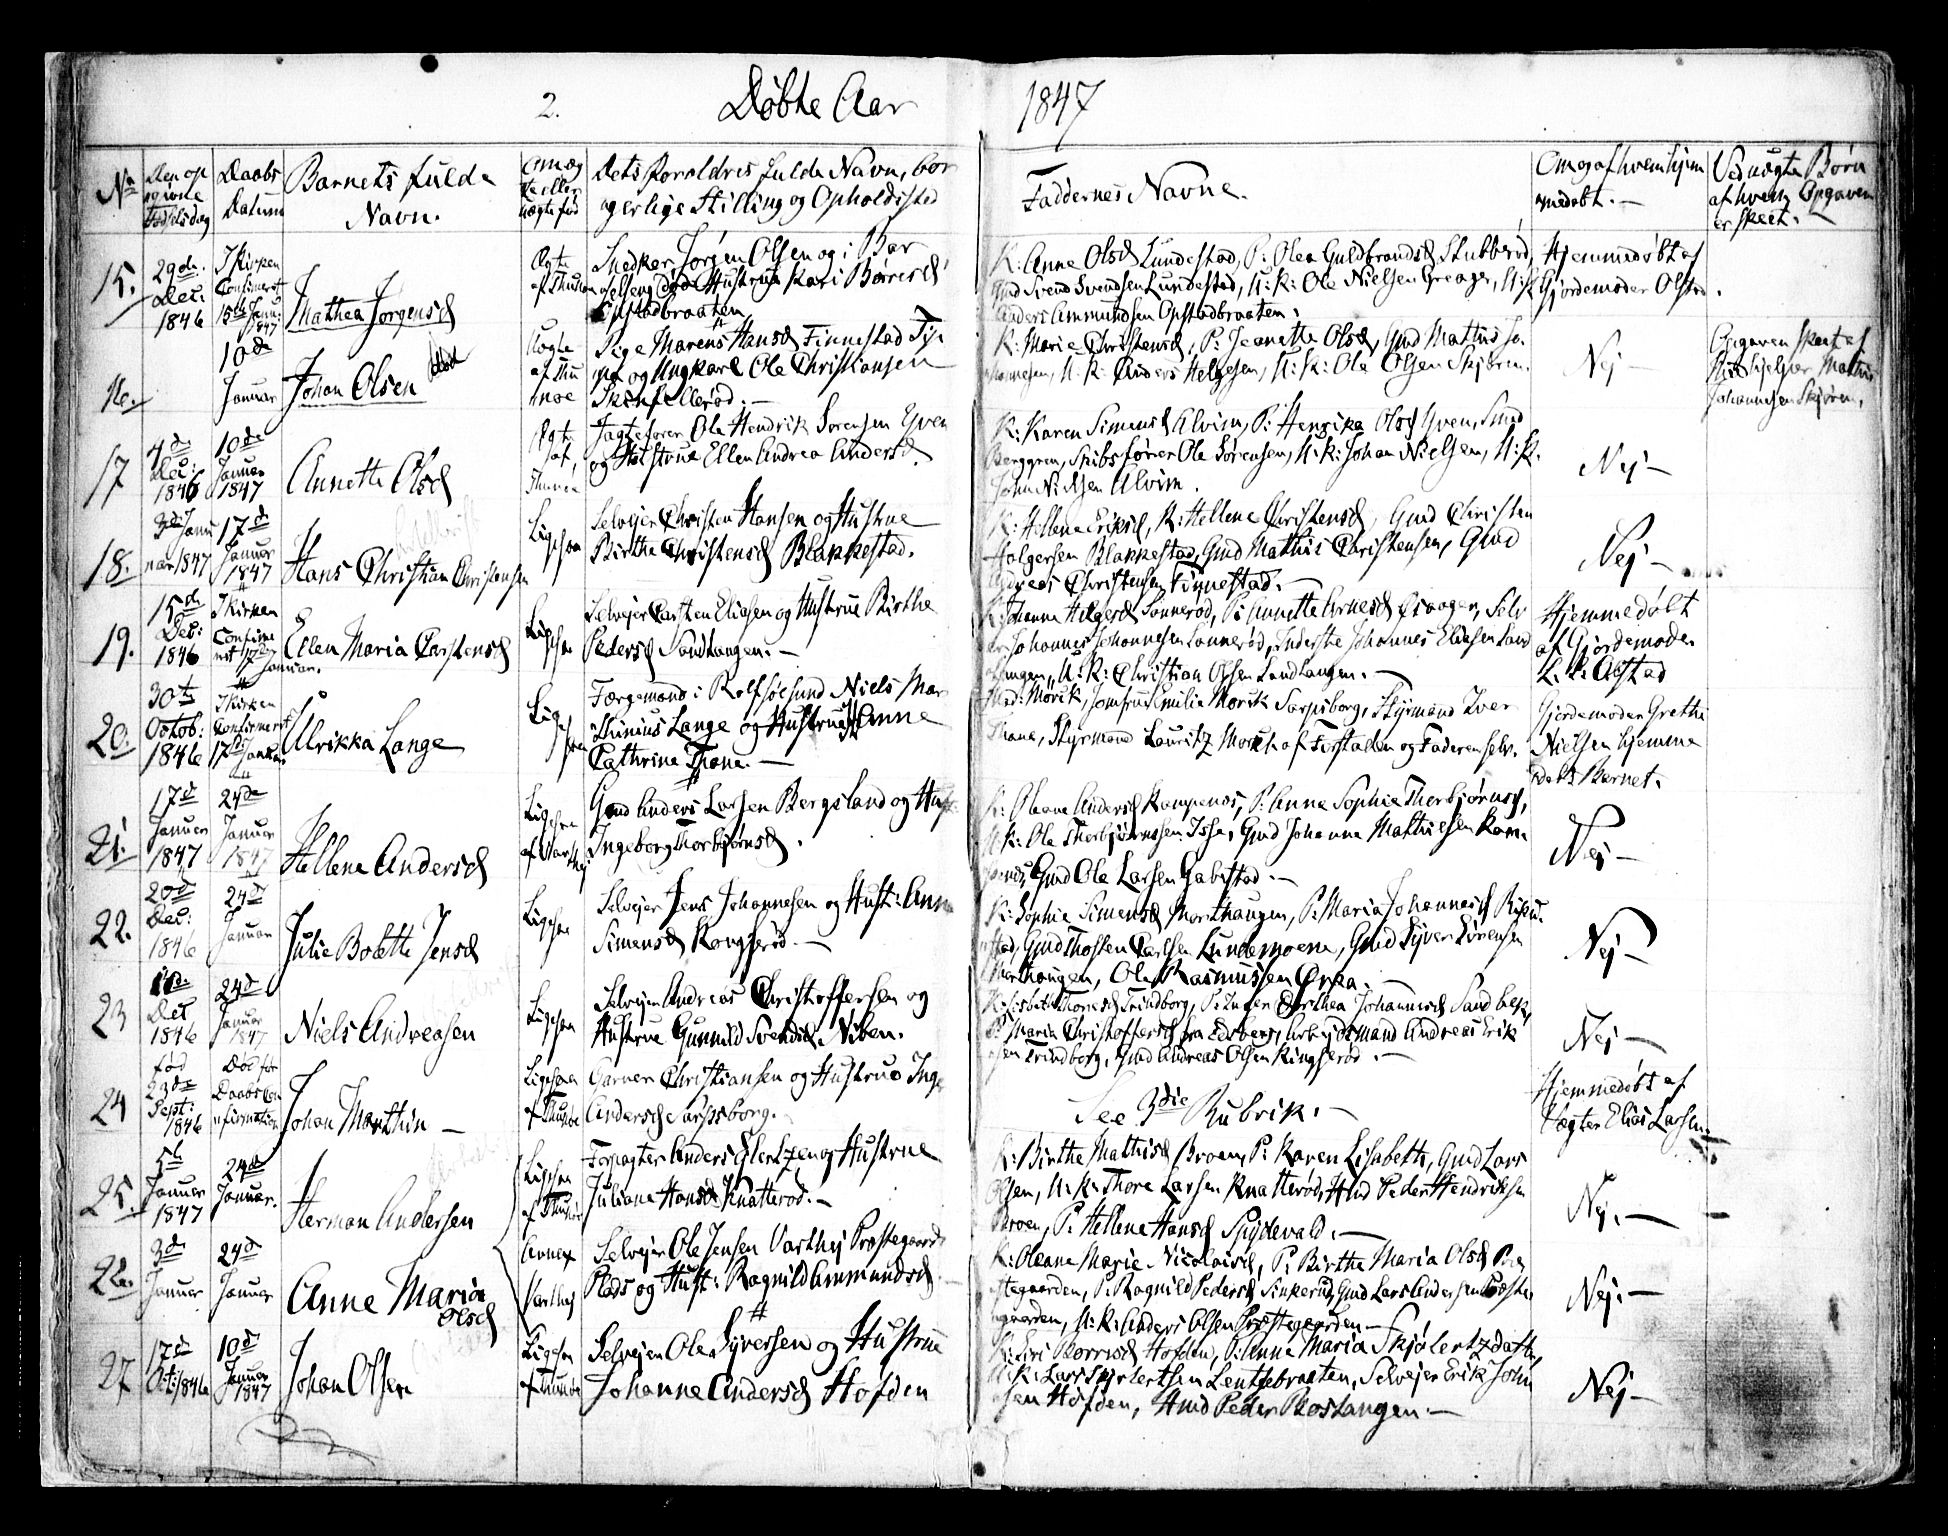 2. Døbte Aar 1847
No
Den op
givne
Fødselsdag
Daabs
Datum
Barnets fulde
Navn.
Om æg
te eller
uægte fød
Dets Forældres fulde Navn, bor
gerlige Stilling og Opholdsted
Faddernes Navne.
Om og af hvem hjem
medøbt.
Ved uægte Børn
af hvem Opgaven
er skeet.
15.
29de
Dec:
1846
I Kirken
Confirmert
15de Janu:
1847
Mathea Jørgensd
Ægte
af Thunøe
Snedker Jørgen Olsen og i Bar
selseng død Hustrue Kari Børresd
Opstadbraaten
K: Anne Olsd Lundestad, P: Olea Guldbrandsd Stubberød,
Gmd Svend Svendsen Lundestad, U:K: Ole Nielsen Greager, U:K
Anders Ammundsen Opstadbraaten.
Hjemmedøbt af
Gjordemoder Olstad.
16.
10de
Januar
Johan Olsen
død
Uægte
af Thu
nøe
Pige Maren Hansd Finnestad
og Ungkarl Ole Christiansen
K: Marie Christensd, P: Jeanette Olsd, Gmd Mathis Jo
hannesen, U:K: Anders Helgesen, U:K: Ole Olsen Skjøren.
Nej
Opgaven skeet af
Medhjelper Mathis
Johannesen Skjøren.
17
4de
Dec:
1846
10de
Januar
1847
Annette Olsd
Ægte
af
Thunøe
Jagtefører Ole Hendrik Sørensen Yven
og Hustrue Ellen Andrea Andersd.
K: Karen Simensd Alvim, P: Henrika Olsd Yven, Smed
Berggren, Skibsfører Ole Sørensen, U:K: Johan Nielsen, U:K.
John Nielsen Alvim.
Nej
18.
3die Janu
uar 1847
17de
Januar
1847
Hans Christian Christensen
Ligesaa
Selvejer Christen Hansen og Hustrue
Birthe Christensd Blakkestad.
K: Hellene Eriksd, K: Hellene Christensd, Gmd Christen
Holgersen Blakkestad, Gmd Mathis Christensen, Gmd
Andreas Christensen Finnestad.
Nej
19.
15de
Dec:
1846
I Kirken
Confirme
ret 17de
Januar.
Ellen Maria Carstensd
Ligesaa
Selvejer Carsten Eliasen og Hustrue Birthe
Pedersd Sandtangen.
K: Johanne Holgersd Sonnerød, P: Annette Arnesd Qraager, Selv
ejer Johannes Johannesen Sonnerød, Inderste Johannes Eliasen Sand
tangen, U:K: Christian Olsen Sandtangen.
Hjemmedøbt
af Gjordemoder
Olstad
20.
30te
Octob:
1846
I Kirken
Confirmert
17de Januar
Ulrikka Lange
Ligesaa
Færgemand i Rolfsøesund Niels Mar
thinius Lange og Hustrue Anne
Cathrine Thane.
Mad: Morck, Jomfru Emilie Morck Sarpsborg, Styrmand Iver
Thane, Styrmand Lauritz Morch af Forstaden og Faderen selv.
Gjordemoder Grethe
Nielsen hjemme
døbt Barnet.
21.
17de
Januar
1847
24de
Januar
1847
Hellene Andersd
Ligesaa
af Varthej
Gmd Anders Larsen Bergsland og Hust
Ingeborg Thorbjørnsd.
K: Oleane Andersd Kampenes, P: Anne Sophie Thorbjørnsd,
U:K: Ole Thorbjørnsen Isse, Gmd Johanne Mathiesen Kam
penes, Gmd Ole Larsen Gabestad.
Nej
22.
20de
Dec:
1846
24de
Januar
Julie Boletta Jensd
Ligesaa
Selvejer Jens Johannesen og Hust: Anne
Simensd Kongsrød.
K: Sophie Simensd Morthaugen, P: Maria Johannesd Risen
stad, Gmd Thosten Carlsen Lundemoene, Gmd Syver Sørensen
Morthaugen, Ole Rasmussen Ørka.
Nej
23
Det
1846
24de
Januar
1847
Niels Andreasen
Ligesaa
Selvejer Andreas Christoffersen og
Hustrue Gunnild Svendsd Viben.
K: Lisbeth Thoresd Trindborg, P: Inger Dorthea Johannesd Sandbek,
P: Maria Christoffersd fra Edsberg, Arbejdsmand Andreas Erik
sen Trindborg, Gmd Andreas Olsen Kingserød.
Nej
24
fød
23de
Sept:
1846
Død før
Daabs Con
firmation
Johan Marthin
Ligesaa
af Thunøe
Garver Christiansen og Hustrue Inge
Andersd Sarpsborg.
See 3die Rubrik.
Hjemmedøbt af
Vægter Elias Larsen.
25.
5te
Januar
1847
24de
Januar.
Herman Andersen
Ligesaa
af Thunøe
Forpagter Anders Glentzen og Hustrue
Juliane Hansd Knatterød.
K: Birthe Mathisd Broen, P: Karen Lisabeth, Gmd Lars
Olsen, U:K: Thore Larsen Knatterød, Hmd Peder Hendriksen
Broen, P: Hellene Hansd Spydevald.
Nej.
26.
3de
Januar
24de
Januar
Anne Maria
Olsd
Annex
Varthej
Selvejer Ole Jensen Varthej Præstegaards
Plads og Hust: Ragnild Ammundsd
K: Oleane Marie Nicolaisd, P: Birthe Maria Olsd Præ
stegaarden, P: Ragnild Pedersd Sinkerud, Gmd Lars Andersen Præste
gaarden, U:K: Anders Olsen Præstegaarden.
Nej.
27
17de
Oct: 1846
10de
Januar
1847
Johan Olsen
Ligesaa
af Thunøe
Selvejer Ole Syversen og Hustrue
Johanne Andersd Hofden
K: Siri Børresd Hofden, P: Anne Maria Skjølertzdatter,
U:K: Lars Skjølertsen Lentsebraaten, Selvejer Erik John
sen Hofden, Hmd Peder Rostangen.
Nej